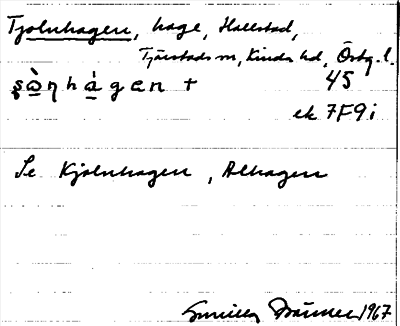 Tjolnhagen, hage, Hallstad,
Tjärstads sn, Kinda hd, Östg. l.
ʂò̠ŋhá̠gen + 45
ek 7F9i
Se Kjolnhagen, Alhagen
1967